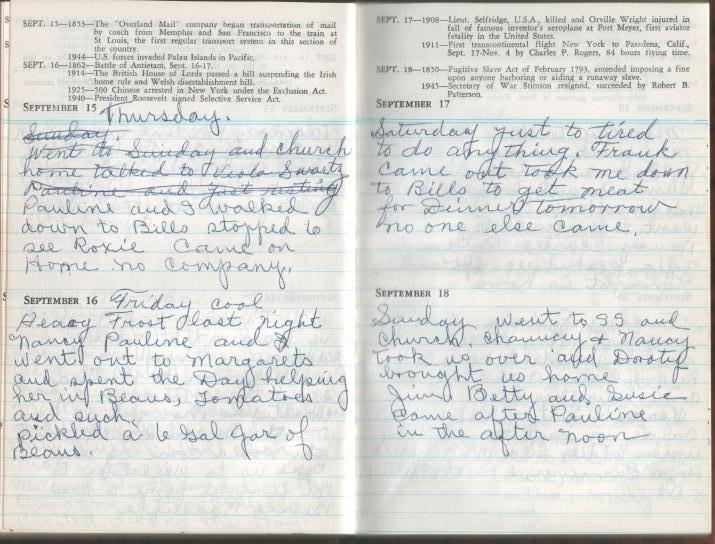 SEPT. 15—1853—The "Overland Mail" company began transportation of mail
by coach from Memphis and San Francisco to the train at
St Louis, the first regular transport system in this section of
the country.
1944—U.S. forces invaded Palau Islands in Pacific.
SEPT. 16—1862—Battle of Antietam, Sept. 16-17.
1914—The British House of Lords passed a bill suspending the Irish
home rule and Welsh disestablishment bill.
1925—500 Chinese arrested in New York under the Exclusion Act.
1940—President Roosevelt signed Selective Service Act.
SEPTEMBER 15 Thursday.
Sunday.
Went to Sunday and church
home talked to Viola Swartz
Pauline and just resting
Pauline and I walked
down to Bills stopped to
see Roxie Came on
Home no Company.
SEPTEMBER 16 Friday cool
Heavy Frost last night
Nancy Pauline and I
went out to Margarets
and spent the Day helping
her in Beans, Tomatoes
and such.
pickled a Gal Jar of
Beans.
SEPT. 17—1908—Lieut. Selfridge, U.S.A., killed and Orville Wright injured in
fall of famous inventor's aeroplane at Fort Meyer, first aviator
fatality in the United States.
1911—First transcontinental flight New York to Pasadena, Calif.,
Sept. 17-Nov. 4 by Charles P. Rogers, 84 hours flying time.
SEPT. 18—1850—Fugitive Slave Act of February 1793, amended imposing a fine
upon anyone harboring or aiding a runaway slave.
1945—Secretary of War Stimson resigned, succeeded by Robert B.
Patterson.
SEPTEMBER 17
Saturday just to tired
to do anything. Frank
Came out took me down
to Bills to get meat
for Dinner tomorrow
no one else came.
SEPTEMBER 18
Sunday went to SS and
Church, Chauncey & Nancy
took us over and Doroty
brought us home
Jim Betty and Susie
Came after Pauline
in the after noon